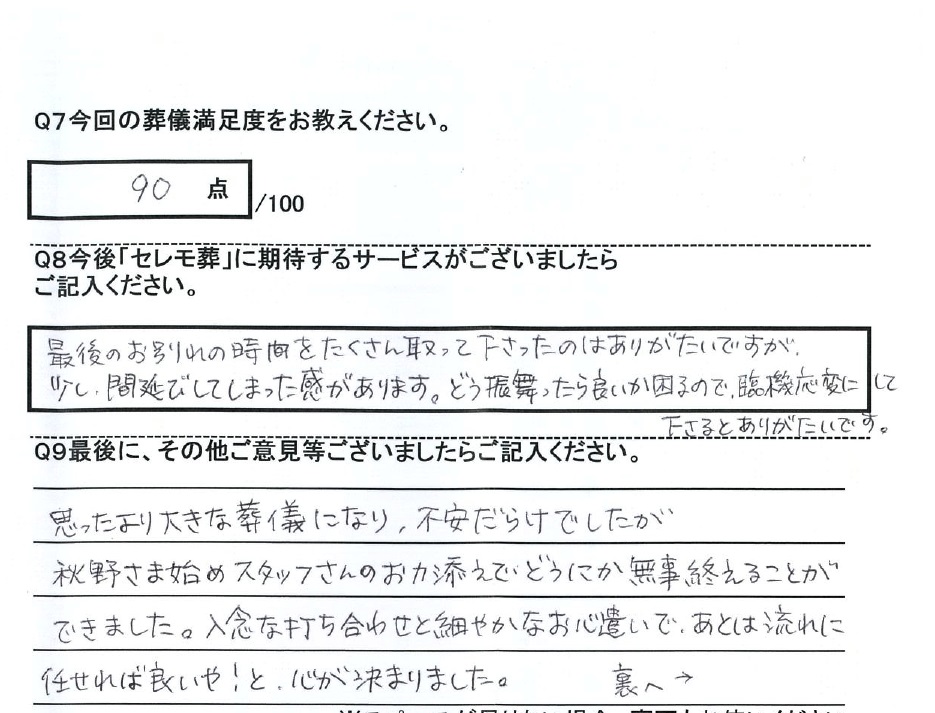 Q7今回の葬儀満足度をお教えください。
90 点
/100
Q8今後「セレモ葬」に期待するサービスがございましたら
ご記入ください。
最後のお別れの時間をたくさん取って下さったのはありがたいですが、
少し、間延びしてしまった感があります。どう振舞ったら良いか困るので、臨機応変にして
下さるとありがたいです。
Q9最後に、その他ご意見等ございましたらご記入ください。
思ったより大きな葬儀になり、不安だらけでしたが
秋野さま始めスタッフさんのお力添えでどうにか無事終えることが
できました。入念な打ち合わせと細やかなお心遣いで、あとは流れに
任せれば良いや!と、心が決まりました。 裏へ→